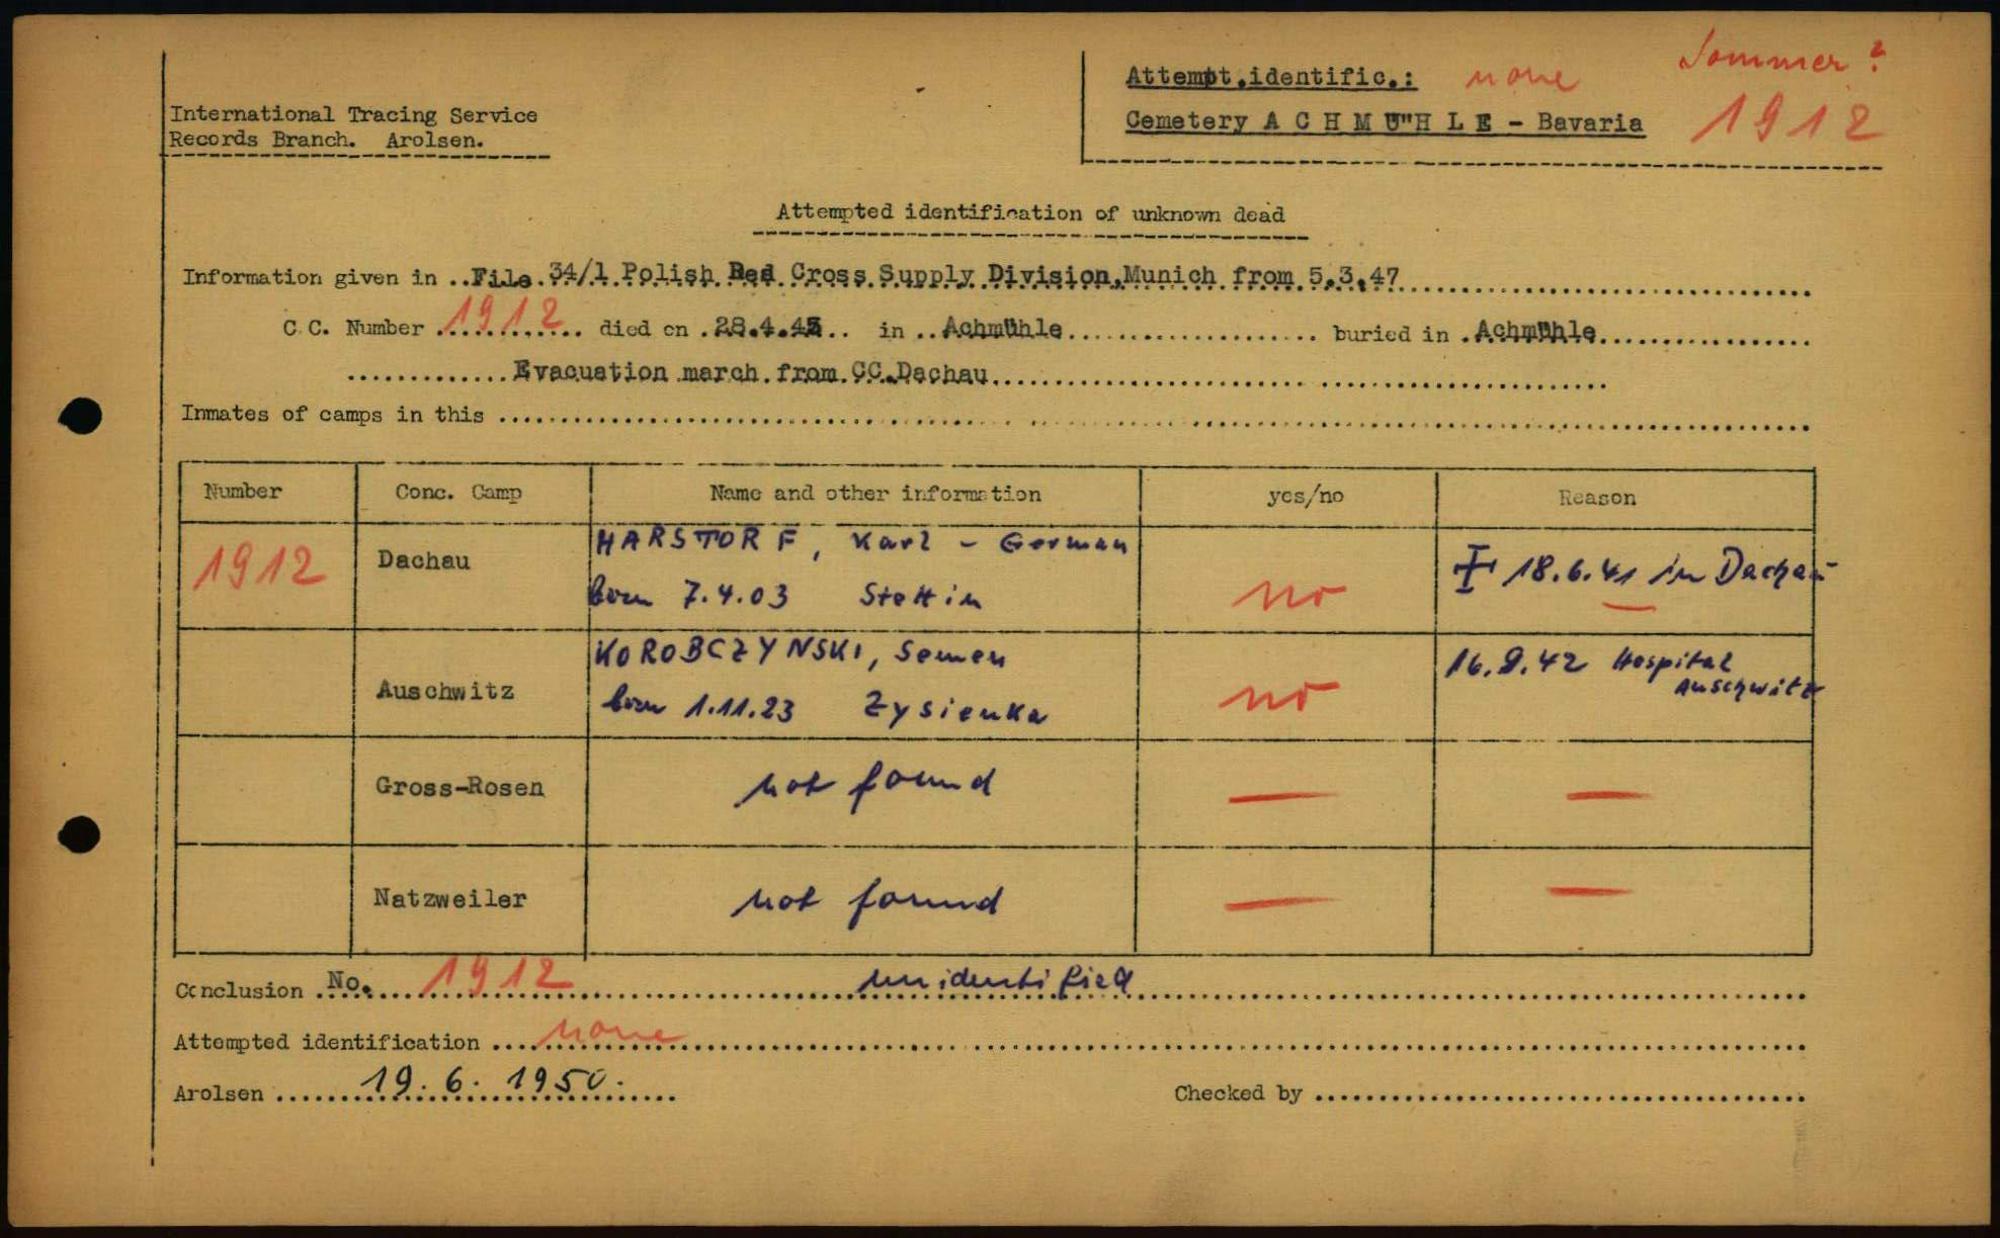 Attempt.identific.: none Sommer?
International Tracing Service
Cemetery A C H M U"H L E - Bavaria 1912
Records Branch. Arolsen.
Attempted identification of unknown dead
Information given in ..File.34/1 Polish Red Cross Supply Division,Munich from 5.3.47
C.C. Number 1912 died on .28.4.45.. in ..Achmühle buried in .Achmühle
Evacuation march from CC.Dachau
Inmates of camps in this
Number Conc. Camp Name and other information yes/no Reason
1912 Dachau HARSTORF, Karl - German
born 7.4.03 Stettin no 18.6.41 in Dachau
Auschwitz KOROBCZYNSKI, Semen
born 1.11.23 Zysienka no 16.9.42 Hospital
Auschwitz
Gross-Rosen not found — —
Natzweiler not found — —
Conclusion No. 1912 unidentified
Attempted identification none
Arolsen 19.6.1950. Checked by